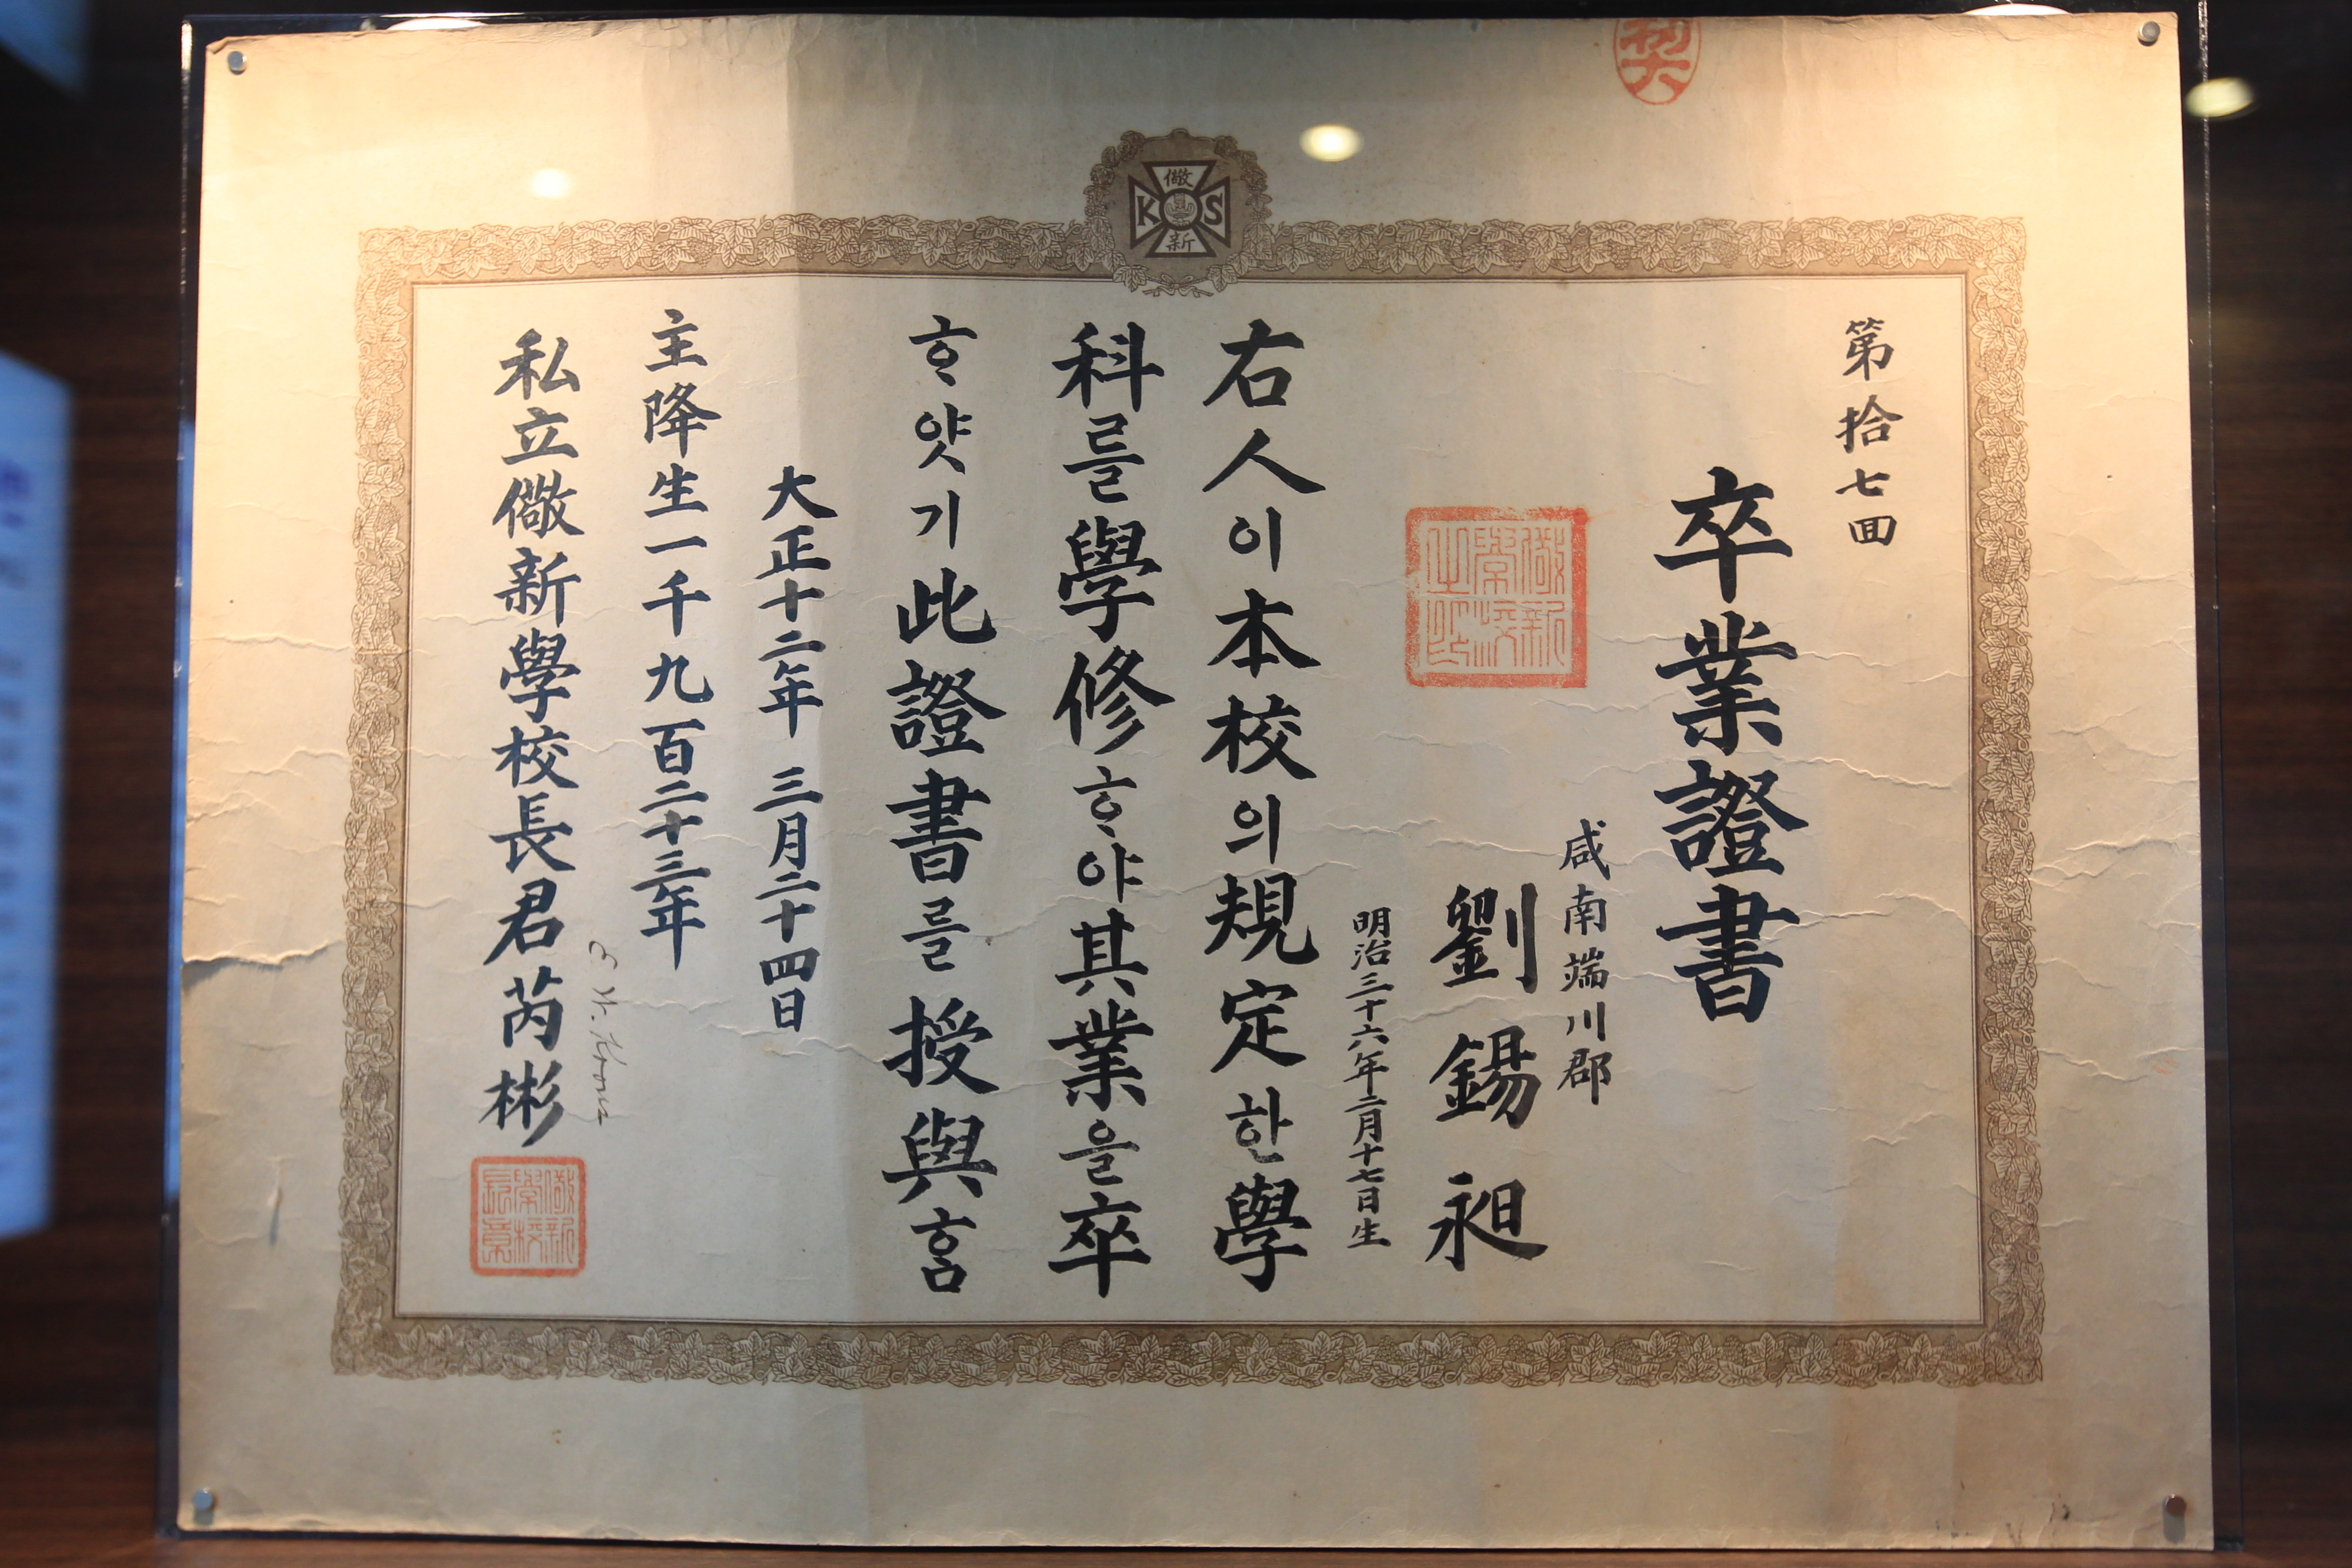 儆
K S
新
第拾七回
卒業證書
咸南端川郡
劉錫昶
明治三十六年二月十七日生
儆新
學校
之印
右人이本校의規定한學
科를學修ᄒᆞ야其業을卒
ᄒᆞ얏기此證書를授與ᄒᆞᆷ
大正十二年 三月二十四日
主降生一千九百二十三年
E. W. Koons
私立儆新學校長君芮彬
儆新
學校
長章